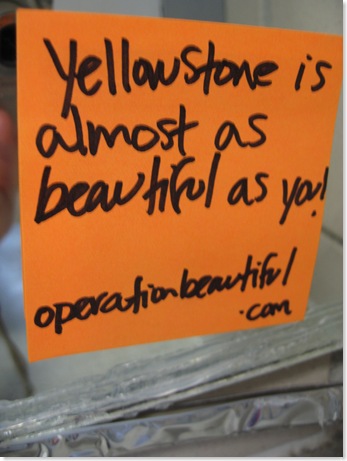 Yellowstone is
almost as
beautiful as you!
operationbeautiful
.com